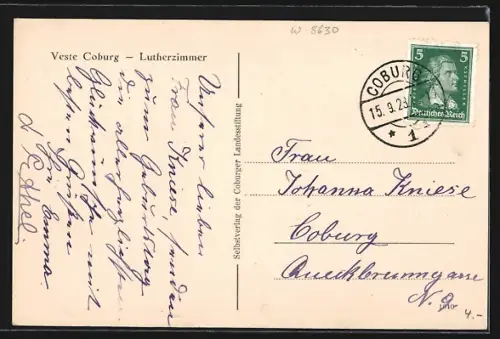 W 8630
Veste Coburg — Lutherzimmer
Unserer lieben
Frau Kniese, senden
zum Geburtstag
die allerherzlichsten
Glückwünsche mit
besten Grüßen
Ihre Emma
Selbstverlag der Coburger Landesstiftung
5 5
Deutsches Reich
COBURG
15.9.28
* 1
Frau
Johanna Kniese
Coburg
Queckbrunngasse
N. 9
4.-